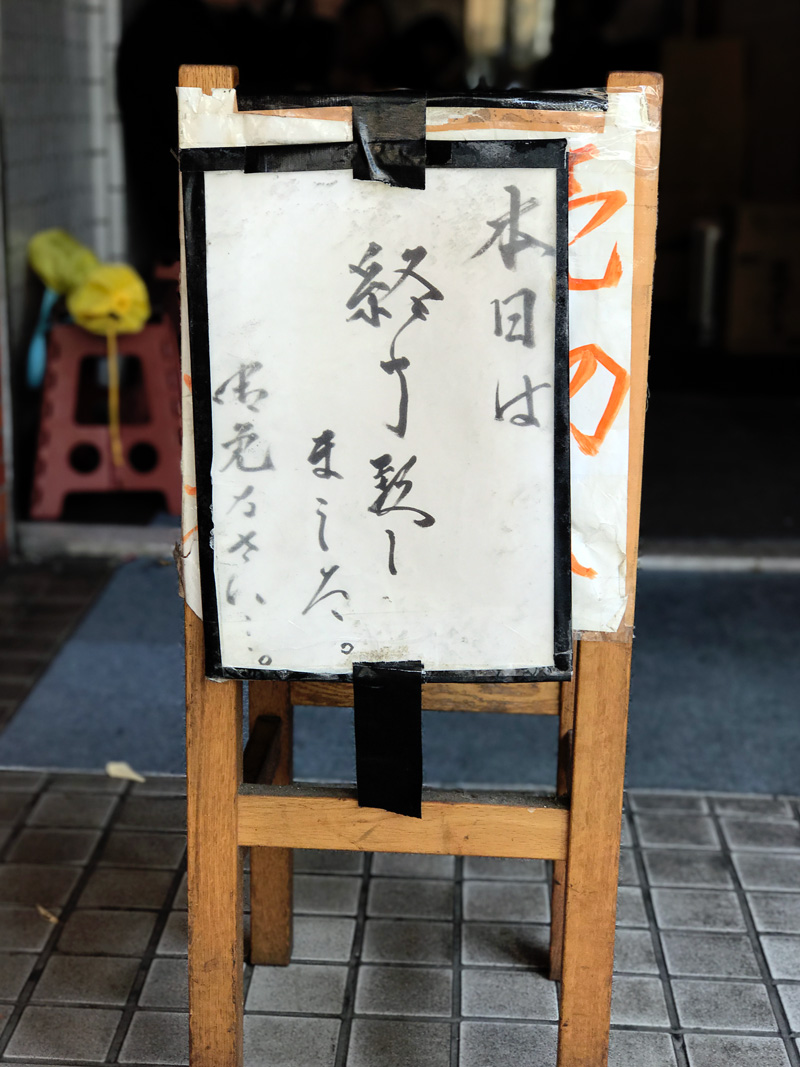 本日は
終了致し
ました。
御免なさい…。